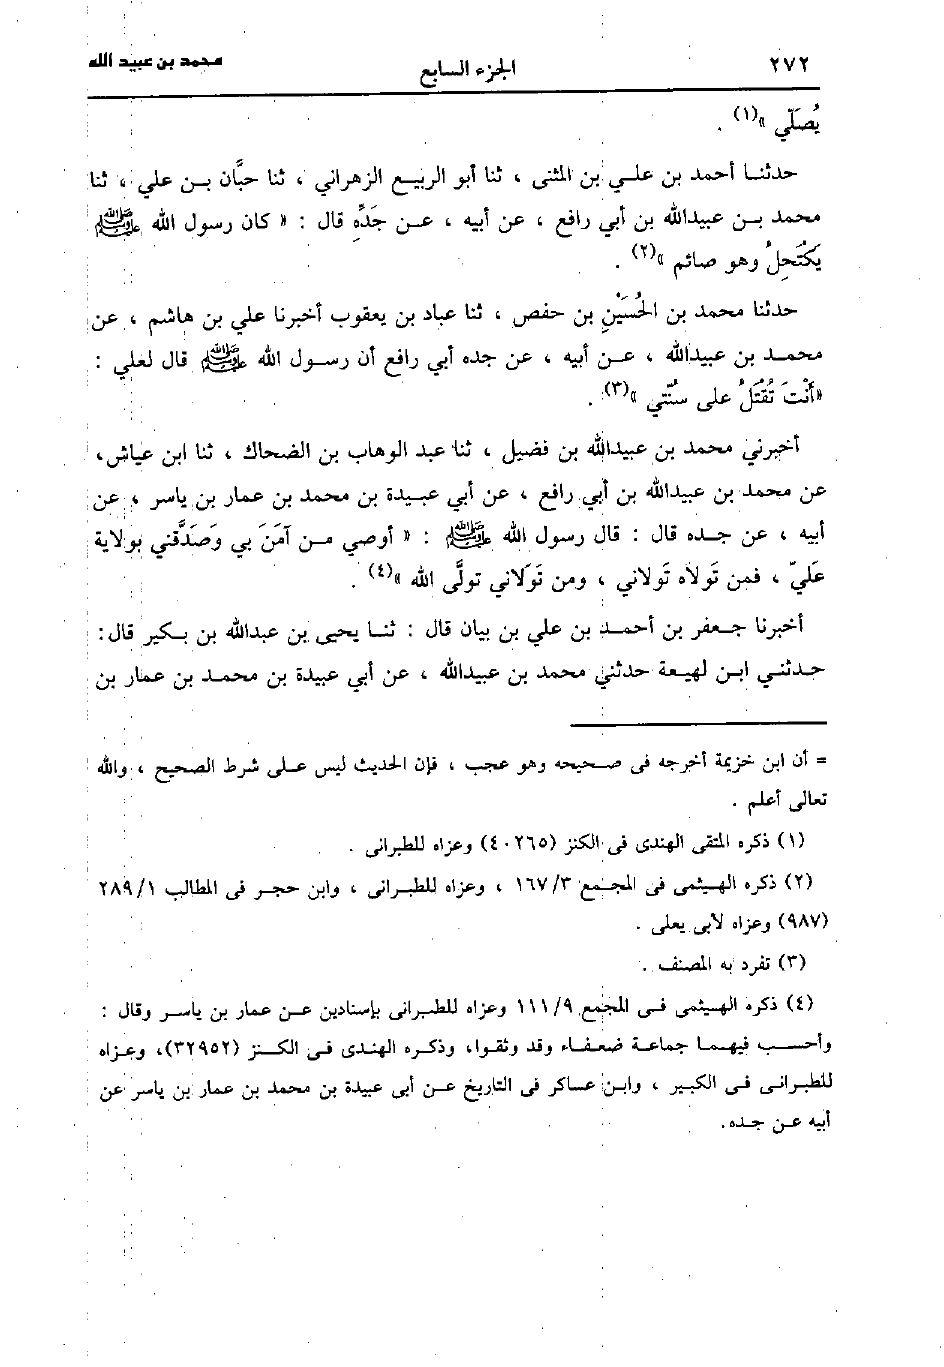 ٢٧٢ الجزء السابع محمد بن عبيد الله
يُصَلّي »(١) .
حدثنا أحمد بن علي بن المثنى ، ثنا أبو الربيع الزهراني ، ثنا حبَّان بن علي ، ثنا
محمد بن عبيدالله بن أبي رافع ، عن أبيه ، عن جَدِّه قال : « كان رسول الله ﷺ
يَكْتَحِلُ وهو صائم »(٢) .
حدثنا محمد بن الحُسَيْنِ بن حفص ، ثنا عباد بن يعقوب أخبرنا علي بن هاشم ، عن
محمد بن عبيدالله ، عن أبيه ، عن جده أبي رافع أن رسول الله ﷺ قال لعلي :
«أنْتَ تُقْتَلُ على سُنَّتي »(٣) .
أخبرني محمد بن عبيدالله بن فضيل ، ثنا عبد الوهاب بن الضحاك ، ثنا ابن عياش،
عن محمد بن عبيدالله بن أبي رافع ، عن أبي عبيدة بن محمد بن عمار بن ياسر ، عن
أبيه ، عن جده قال : قال رسول الله ﷺ : « أوصي من آمَنَ بي وَصَدَّقني بولاية
عَليّ ، فمن تَولاه تَولاني ، ومن تَوَلاني تولَّى الله »(٤) .
أخبرنا جعفر بن أحمد بن علي بن بيان قال : ثنا يحيى بن عبدالله بن بكير قال:
حدثني ابن لهيعة حدثني محمد بن عبيدالله ، عن أبي عبيدة بن محمد بن عمار بن
= أن ابن خزيمة أخرجه فى صحيحه وهو عجب ، فإن الحديث ليس على شرط الصحيح ، والله
تعالى أعلم .
(١) ذكره المتقى الهندى فى الكنز (٤٠٢٦٥) وعزاه للطبرانى .
(٢) ذكره الهيثمى فى المجمع ١٦٧/٣ ، وعزاه للطبرانى ، وابن حجر فى المطالب ٢٨٩/١
(٩٨٧) وعزاه لأبى يعلى .
(٣) تفرد به المصنف .
(٤) ذكره الهيثمى فى المجمع ١١١/٩ وعزاه للطبرانى بإسنادين عن عمار بن ياسر وقال :
وأحسب فيهما جماعة ضعفاء وقد وثقوا، وذكره الهندى فى الكنز (٣٢٩٥٢)، وعزاه
للطبرانى فى الكبير ، وابن عساكر فى التاريخ عن أبى عبيدة بن محمد بن عمار بن ياسر عن
أبيه عن جده.